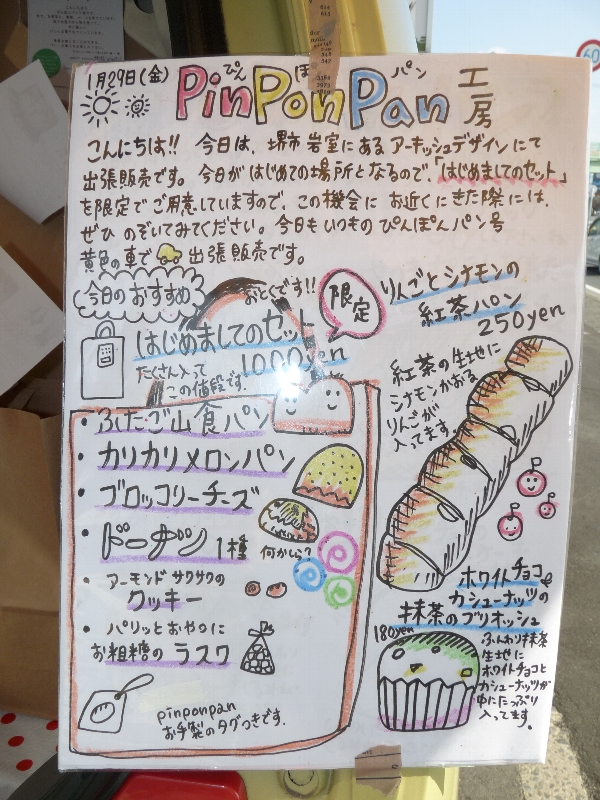 1月29日(金)
PinPonPan 工房
ぴん ぽ パン
こんにちは!! 今日は、堺市 岩室にある アーキッシュデザインにて
出張販売です。今日が はじめての場所となるので、「はじめましてのセット」
を限定で ご用意していますので、この機会に お近くにきた際には、
ぜひ のぞいてみてください。今日も いつもの ぴんぽんパン号
黄色の車で 出張販売です。
今日のおすすめ
おとくです!!
限定
はじめましてのセット
1000yen
たくさん入って
この値段です。
・ふたご山食パン
・カリカリメロンパン
・ブロッコリーチーズ
・ドーナツ 1種
何かしら?
・アーモンド サクサクの
クッキー
・パリッとおやつに
お粗糖の ラスク
pinponpan
お手製の タグつきです.
りんごとシナモンの
紅茶パン
250yen
紅茶の生地に
シナモンかおる
りんごが
入ってます。
ホワイトチョコと
カシューナッツの
抹茶のブリオッシュ
180yen
ふんわり抹茶
生地に
ホワイトチョコと
カシューナッツが
中にたっぷり
入ってます。
60